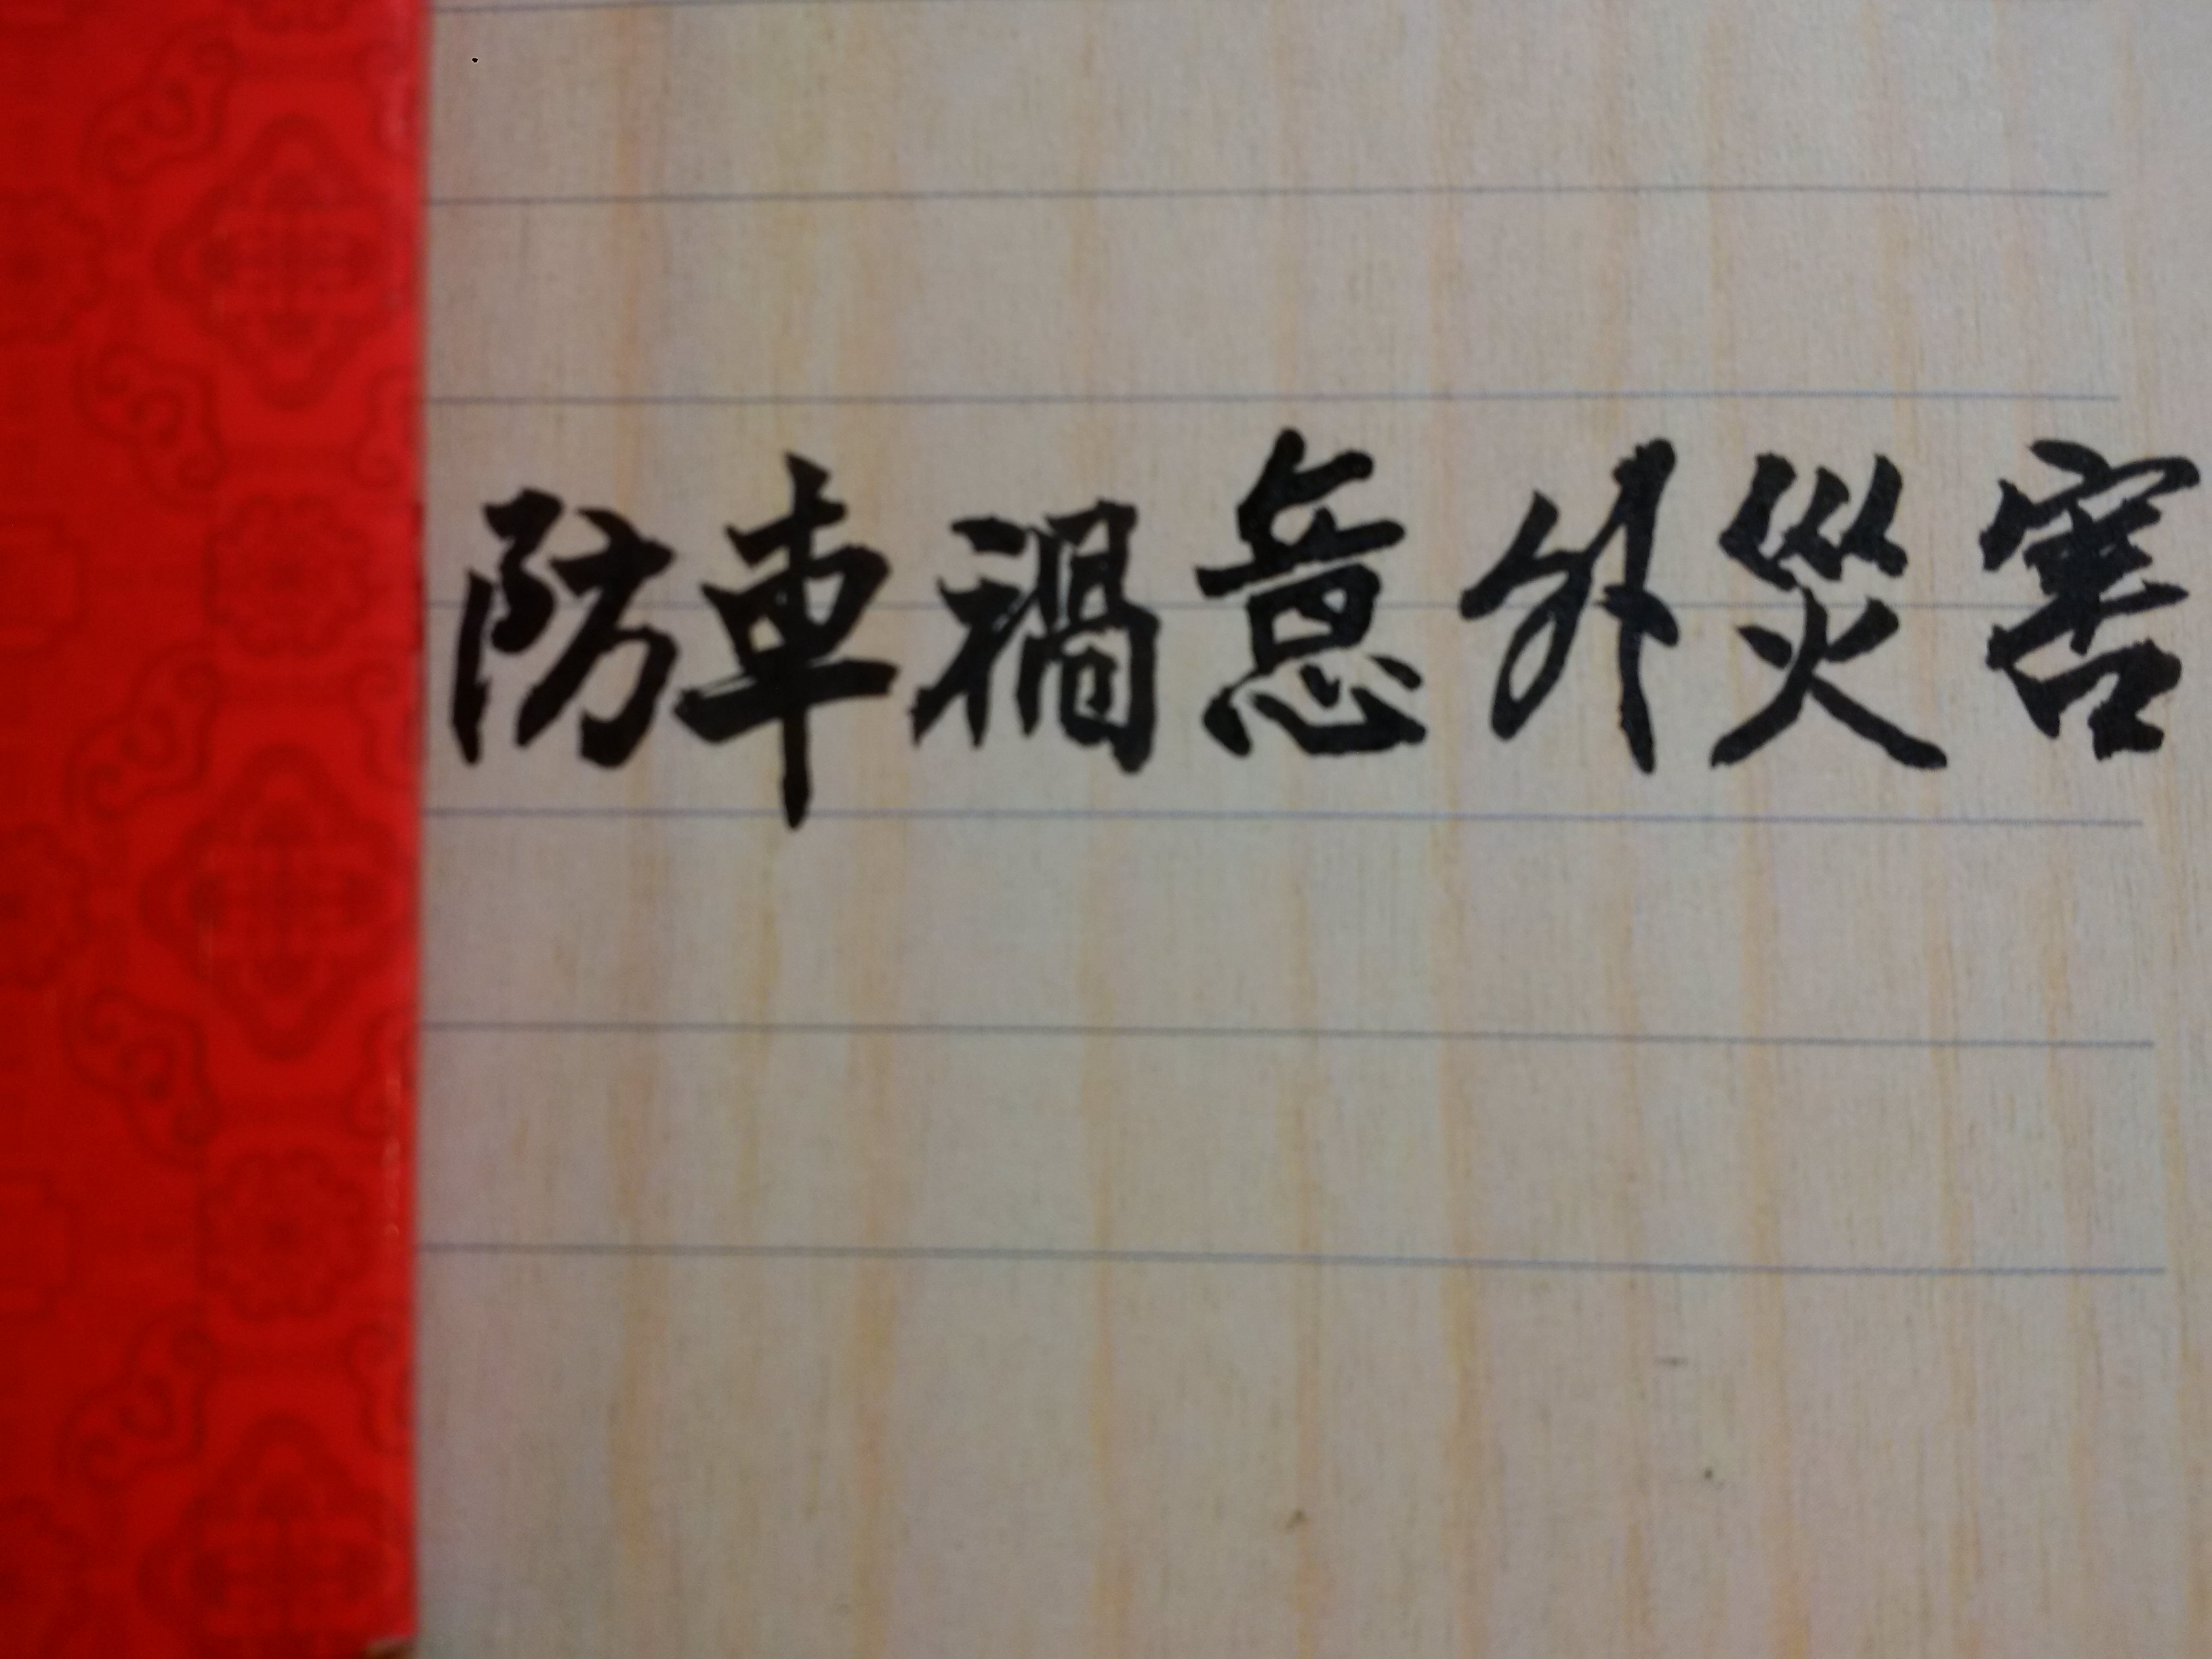 防車禍意外災害